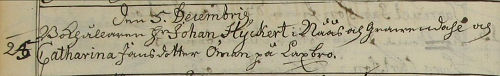 Den 5. Decembris
Bokhållaren Hr Johan Flyckert i Nääs och Grawendahl och
Catharina Jansdotter Öman på Laxbro.